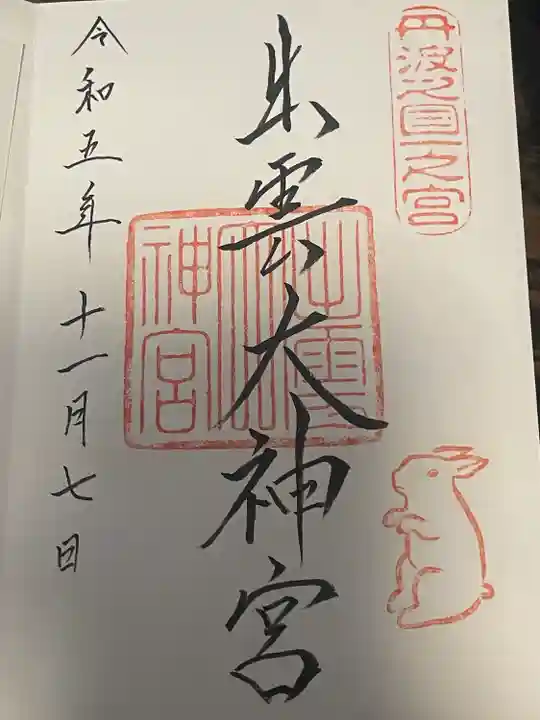 丹波國一之宮
出雲大神宮
出雲大神宮
令和五年十一月七日